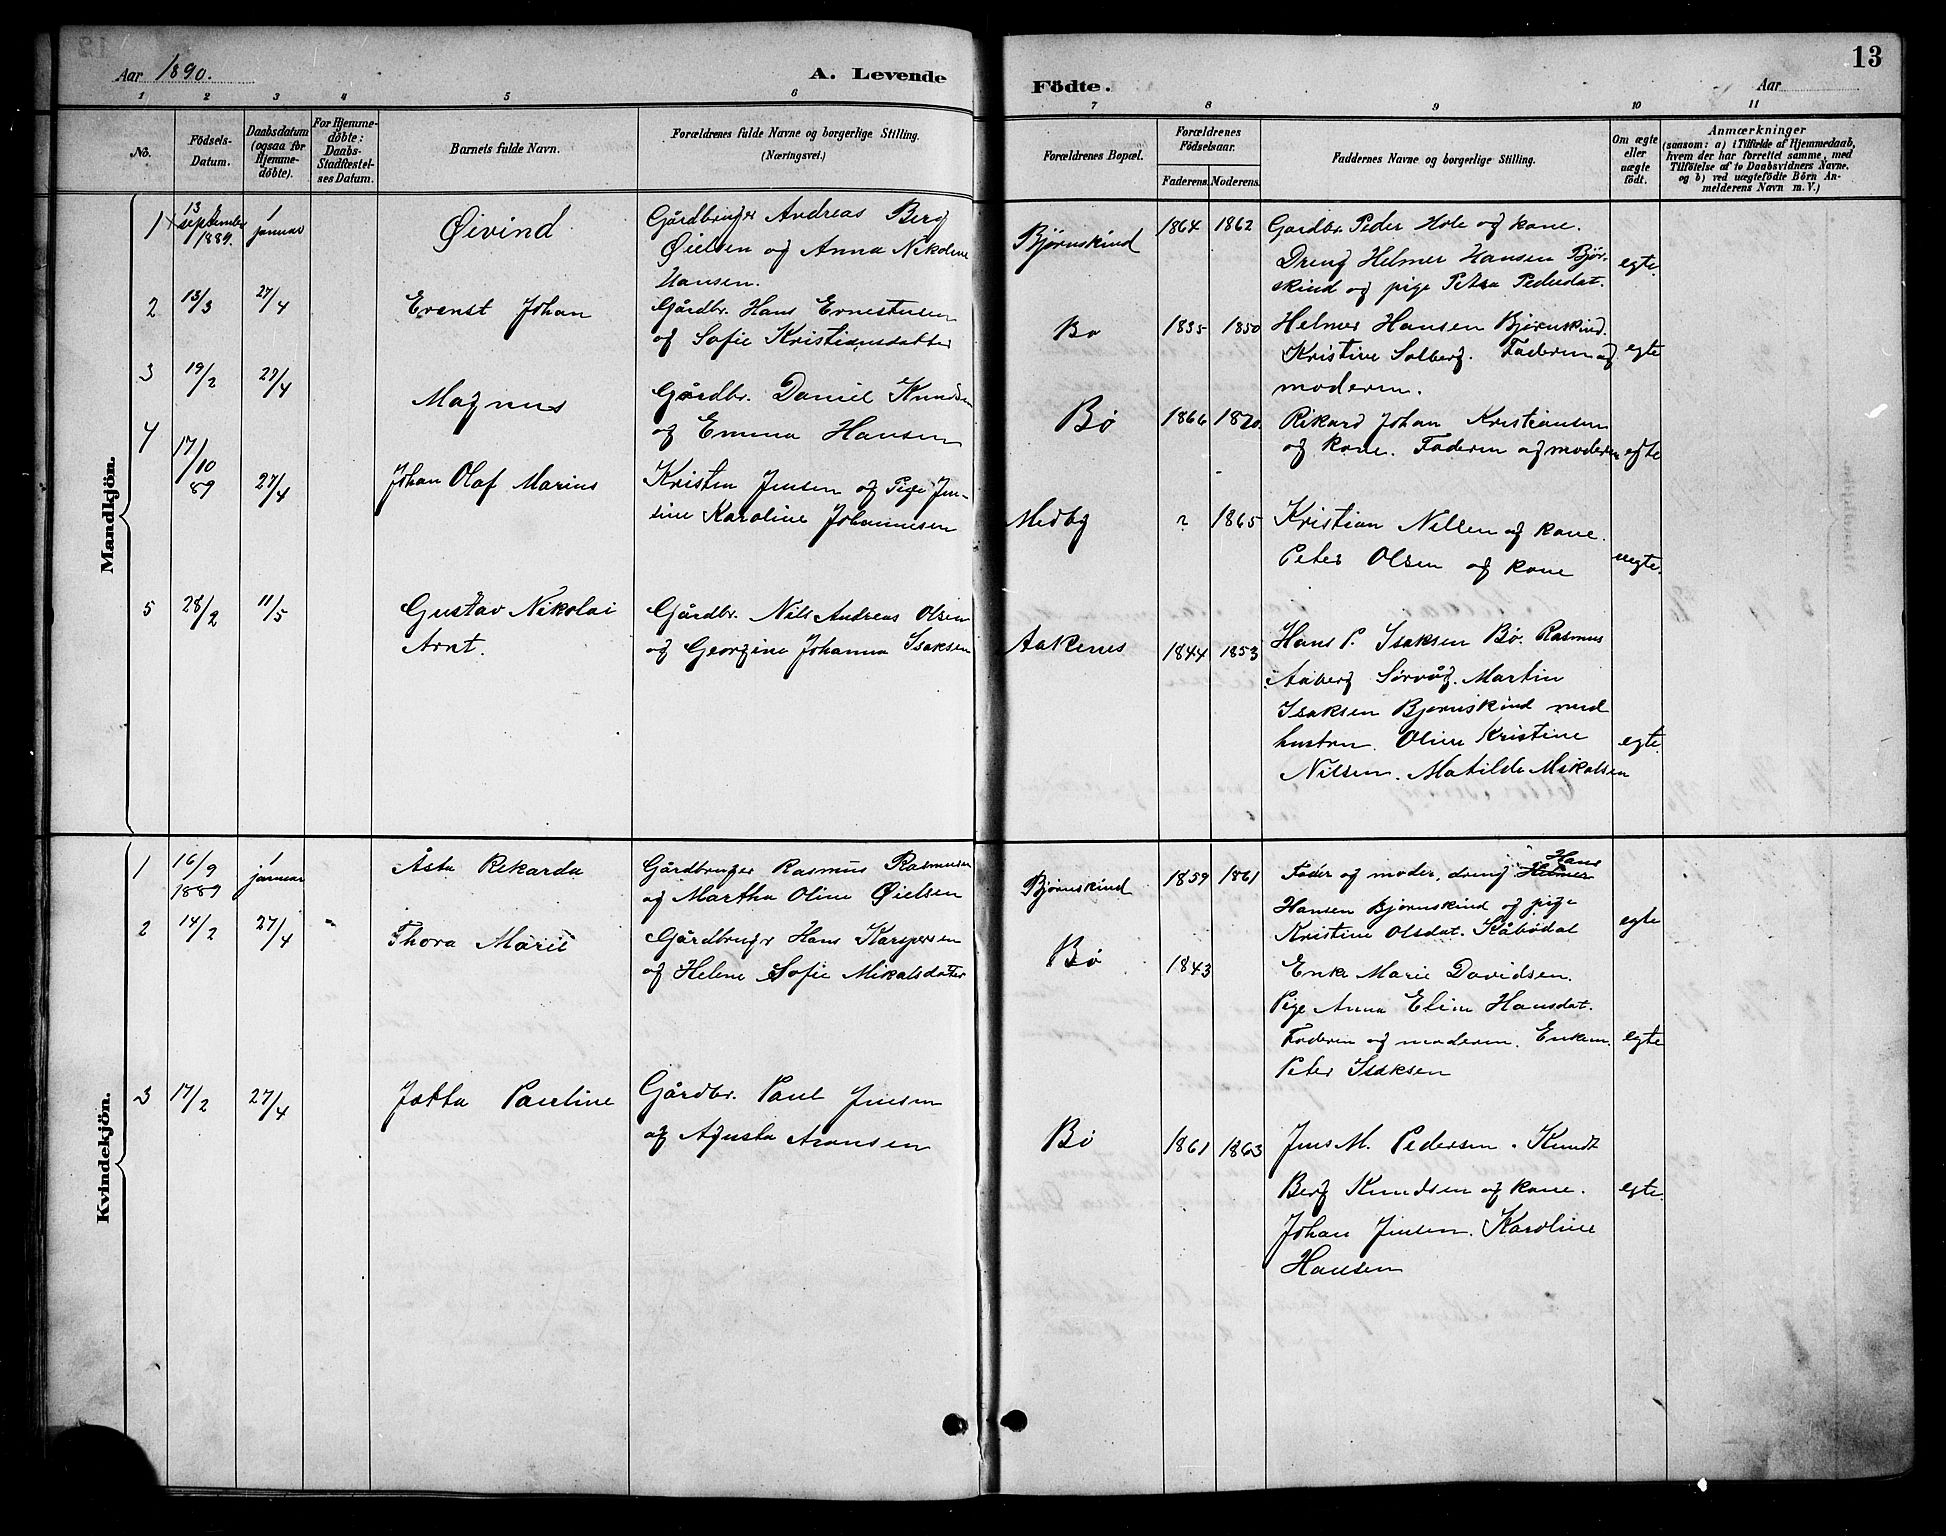 Aar 1890.
A. Levende
Födte.
Aar
13
1 2 3 4 5 6 7 8 9 10 11
No.
Födsels-
Datum.
Daabsdatum
(ogsaa for
Hjemme-
døbte).
For Hjemme-
døbte:
Daabs-
Stadfæstel-
ses Datum.
Barnets fulde Navn.
Forældrenes fulde Navne og borgerlige Stilling.
(Næringsvei.)
Forældrenes Bopæl.
Forældrenes
Födselsaar.
Faderens. Moderens.
Faddernes Navne og borgerlige Stilling.
Om ægte
eller
uægte
født.
Anmærkninger
(saasom: a) i Tilfælde af Hjemmedaab,
hvem der har forrettet samme, med
Tilföielse af to Daabsvidners Navne.
og b) ved uægtefödte Börn An-
melderens Navn m. V.)
Mandkjön.
1 13 september 1889. 1 januar
Øivind
Gårdbruger Andreas Berg
Øielsen og Anna Nikoline
Hansen.
Bjørnskind
1864 1862
Gardbr. Peder Hole og kone.
Dreng Helmer Hansen Bjør-
skind og pige Petra Pedersdat.
egte.
2 13/3 27/4
Erenst Johan
Gårdbr. Hans Ernestusen
og Sofie Kristiansdatter
Bo
1835 1850
Helmer Hansen Bjørnskind.
Kristine Solberg. Faderen og
moderen.
egte
3 19/2 27/4
Magnus
Gårdbr. Daniel Knudsen
og Emma Hansen
Bø
1866 1870.
Rikard Johan Kristiansen
og kone. Faderen og moderen
egte
4 17/10 89 27/4
Johan Olaf Marius
Kristen Jensen og Pige Jen-
sine Karoline Johannesen
Medby
? 1865
Kristian Nilsen og kone.
Peter Olsen og kone
uegte.
5 28/2 11/5
Gustav Nikolai
Arnt.
Gårdbr. Nils Andreas Olsen
og Georgine Johanna Isaksen
Aakenes
1844 1853
Hans P. Isaksen Bø. Rasmus
Aaberg Sørvåg. Martin
Isaksen Bjørnskind med
hustru. Oline Kristine
Nilsen. Matilde Mikalsen
egte.
Kvindekjön.
1 16/9 1889 1 januar
Åsta Rikarda
Gårdbruger Rasmus Rasmusen
og Martha Oline Øielsen
Bjørnskind
1859 1861
Hans
Fader og moder, dreng Helmer
Hansen Bjørnskind og pige
Kristine Olsdat. Kåbødal
egte
2 14/2 27/4
Thora Marie
Gårdbruger Hans Kaspersen
og Helene Sofie Mikalsdatter
Bø
1843
Enke Marie Davidsen.
Pige Anna Eline Hansdat.
Faderen og moderen. Enkem.
Peter Isaksen
egte
3 17/2 27/4
Jetta Pauline
Gårdbr. Paul Jensen
og Agusta Aronsen
Bø
1861 1863
Jens M. Pedersen. Knudt
Berg Knudsen og kone.
Johan Jensen. Karoline
Hansen
egte.